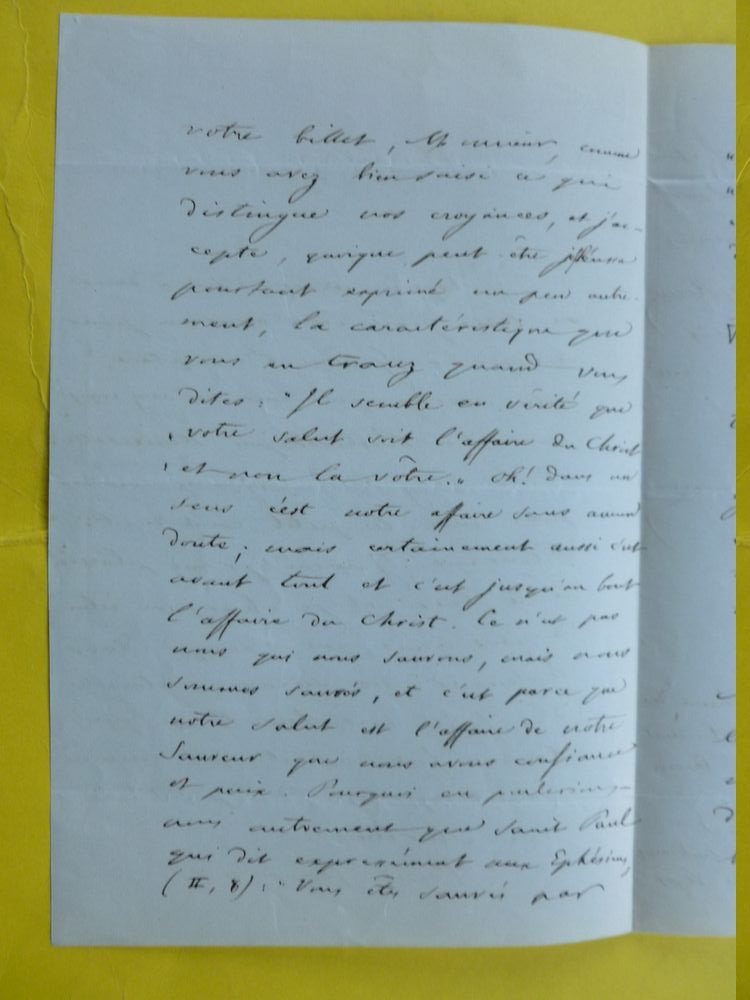 votre billet, Monsieur, comme
vous avez bien saisi ce qui
distingue nos croyances, et j'ac-
cepte, quoique peut être j'eusse
pourtant exprimé un peu autre-
ment, la caractéristique que
vous en tracez quand vous
dites : "Il semble en vérité que
"votre salut soit l'affaire du Christ
"et non la vôtre." Oh! dans un
sens c'est notre affaire sans aucun
doute ; mais certainement aussi c'est
avant tout et c'est jusqu'au bout
l'affaire du Christ. Ce n'est pas
nous qui nous sauvons, mais nous
sommes sauvés, et c'est parce que
notre salut est l'affaire de notre
Sauveur que nous avons confiance
et paix. Pourquoi en parlerions-
nous autrement que Saint Paul
qui dit expressément aux Ephésiens,
(II, 8) : "Vous êtes sauvés par